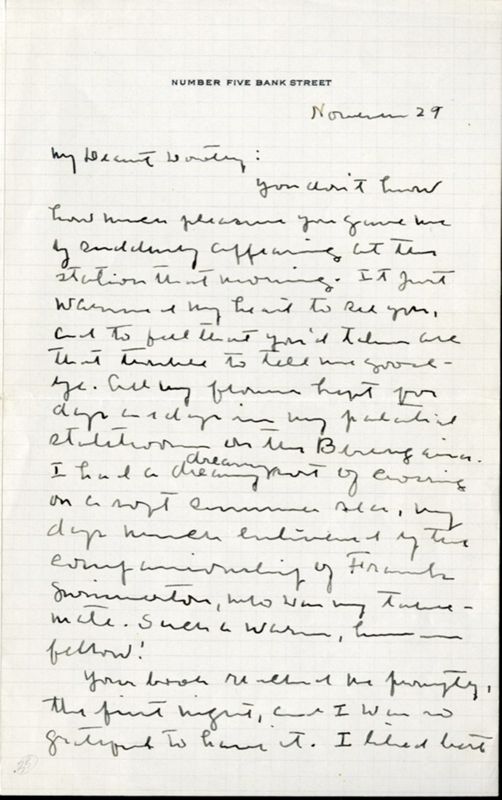 NUMBER FIVE BANK STREET
November 29
My Dearest Dorothy:
You don't know
how much pleasure you gave me
by suddenly appearing at the
station that morning. It just
warmed my heart to see you,
and to feel that you'd taken all
that trouble to tell me good-
bye. All my flowers kept for
days and days in my palatial
stateroom on the Berengaria.
dreamy
I had a dreamy sort of crossing
on a soft summer sea, my
days much enlivened by the
companionship of Frank
Swinnerton, who was my table-
mate. Such a warm, human
fellow!
Your book reached me promptly,
the first night, and I was so
grateful to have it. I liked best